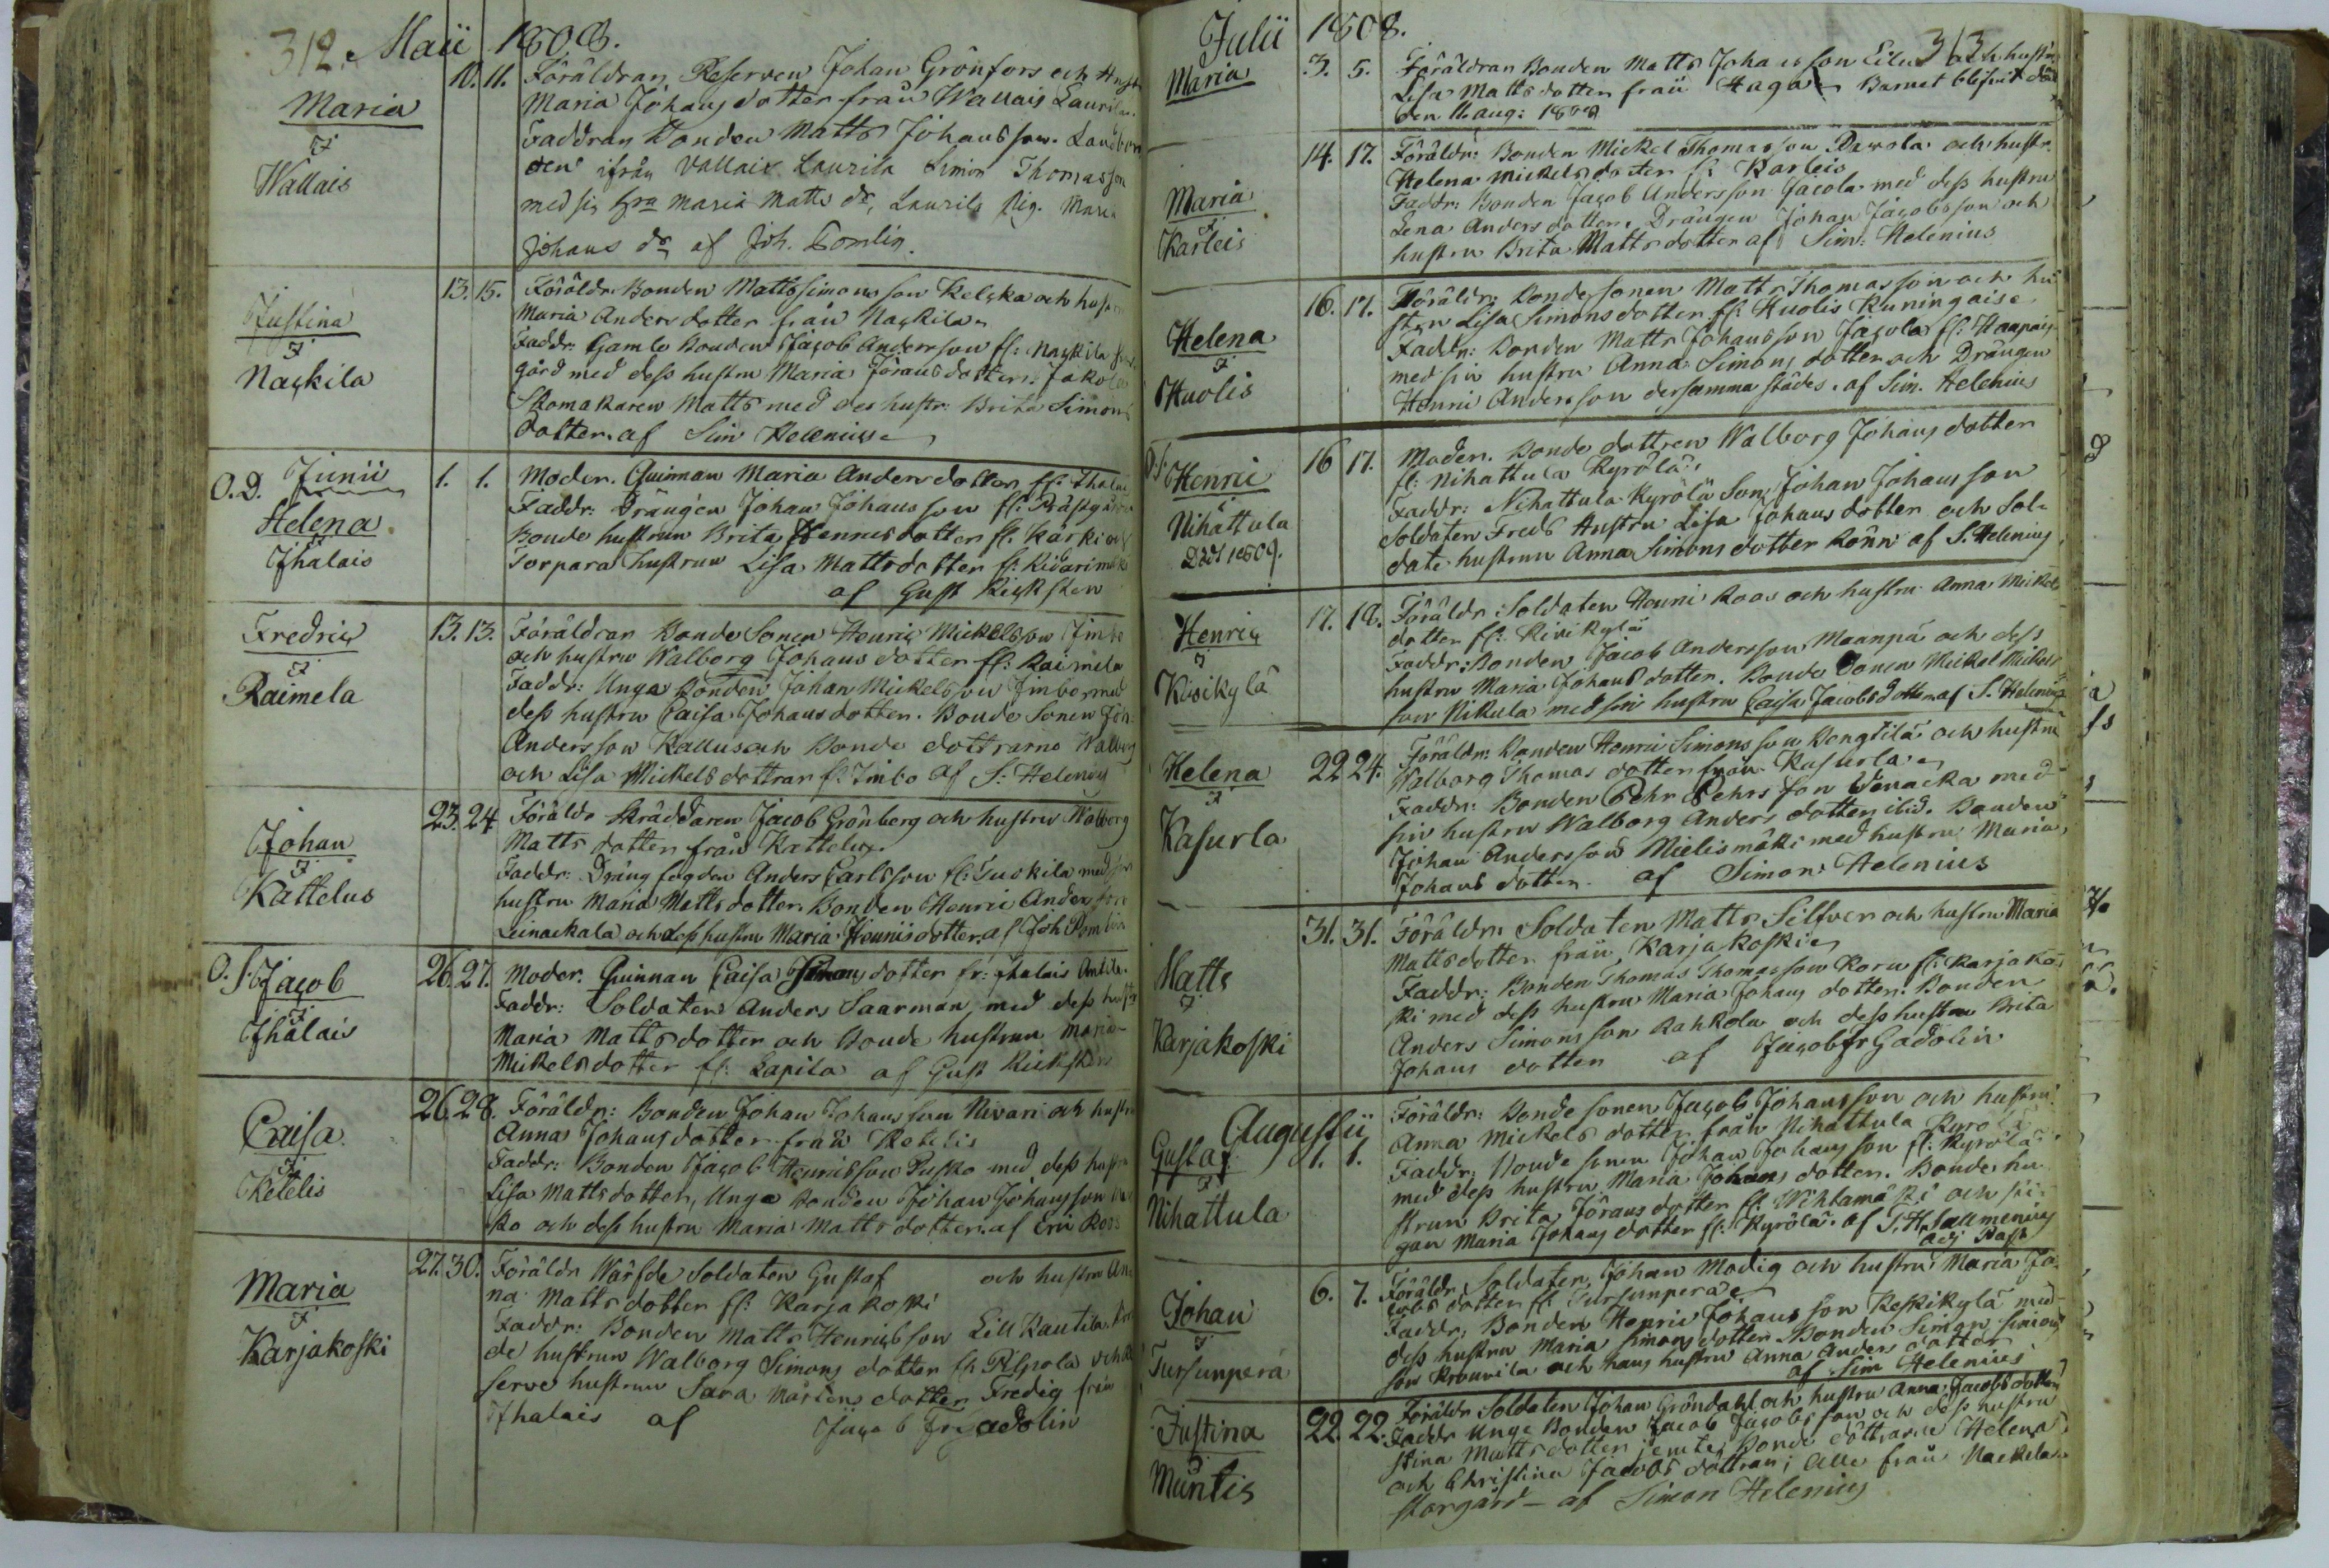 312. Maii 1808.
Maria
f
Wallais
10. 11. Föräldran Reserven Johan Grönfors och Hustr
Maria Johans dotter från Wallais Laurila
Faddran Bonden Matts Johansson Landbon
den ifrån Vallais Laurila Simon Thomasson
med sin hra Maria Matts dr, Laurila Pig. Maria
Johans dr af Joh. Pomlin.
Justina
f
Nackila
13. 15. Föräldr. Bonden Matts Simonsson Kelcka och hustru
Maria Anders dotter från Nackila
Faddr. Gamle Bonden Jacob Andersson fl: Nackila
gård med dess hustru Maria Jörans dotter. Jakola
Skomakaren Matts med des hustr: Brita Simons
dotter. af Sim Helenius
O. D. Junii
Helena
f
Ihalais
1. 1. Moder. Quinnan Maria Anders dotter fl: Ihalais
Faddr: Drängen Johan Johansson fl: Prästgården
Bonde hustrun Brita Henricsdotter fl. Kärki och
Torpara hustrun Lisa Mattsdotter fl: Kivarimäki
af Gust Rickstén
Fredric
f
Raimela
13. 13. Föräldran Bonde Sonen Henric Mickelsson Jimbo
och hustru Walborg Johans dotter fl: Raimela
Faddr: Unga Bonden Johan Mickelsson Jimbo med
dess hustru Caisa Johans dotter. Bonde Sonen Joh:
Andersson Kallus och Bonde dottrarne Walborg
och Lisa Mickels dottrar fl. Jimbo af S: Helenius
Johan
f
Kattelus
23. 24 Förälde Skräddaren Jacob Grönberg och hustru Walborg
Matts dotter från Kattelus.
Faddr: Dräng fogden Anders Carlsson fl: Tuskila med sin
hustru Maria Mattsdotter. Bonden Henric Andersson
Leinackala och dess hustru Maria Henricsdotter. af Joh Pomlin
O. S. Jacob
f
Ihalais
26. 27. Moder. Quinnan Caisa Simons dotter fr: Ihalais Anttila.
Faddr: Soldaten Anders Saarman, med dess hustr
Maria Mattsdotter och Bonde hustrun Maria
Mickelsdotter fl: Lapila af Gust Rickstén
Caisa
f
Ketelis
26. 28. Föräldr: Bonden Johan Johansson Nivari och hustru
Anna Johansdotter från Ketelis
Faddr: Bonden Jacob Henricsson Pusko med dess hustru
Lisa Mattsdotter, Unga Bonden Johan Johansson
ko och dess hustru Maria Mattsdotter. af Eric Roos
Maria
f
Karjakoski
27. 30. Föräldr Wärfde Soldaten Gustaf och hustru An-
na Matts dotter fl: Karjakoski
Faddr: Bonden Matts Henricsson Lill Kautila,
de hustrun Walborg Simons dotter fl. Pilpola och
serve hustrun Sara Mårtens dotter Fredig från
Ihalais af Jacob Fr Gadolin
Julii 1808. 313
Maria
3. 5. Föräldran Bonden Matts Johansson Eilus och hustru
Lisa Mattsdotter från Haga Barnet blifvit död
den 11. aug: 1808
Maria
f
Karleis
14. 17. Föräldr: Bonden Mickel Thomasson Pawola och hustr.
Helena Mickels doter fl. Karleis
Faddr: Bonden Jacob Andersson Jacola med dess hustru
Lena Anders dotter. Drängen Johan Jacobsson och
hustru Brita Mattsdotter af Sim: Helenius
Helena
f
Huolis
16. 17. Föräldr: Bonde sonen Matts Thomasson och hu
stru Lisa Simonsdotter fl. Huolis Kuningais
Faddr: Bonden Matts Johansson Jacola fl. Haapais
med sin hustru Anna Simons dotter och Drängen
Henric Andersson dersamma städes. af Sim. Helenius
O. S. Henric
f
Nihattula
Död 1809.
16 17. Moder. Bonde dottren Walborg Johans dotter
fl: Nihattula Kyrölä.
Faddr: Nihattula Kyrölä Son Johan Johansson
Soldaten Freds Hustru Lisa Johans dotter och Sol-
date hustrun Anna Simons dotter Rönn af S. Helenius
Henric
f
Kivikylä
17. 18. Föräldr: Soldaten Henric Roos och hustru Anna Mickels
dotter fl: Kivikylä
Faddr: Bonden Jacob Andersson Maanpä och dess
hustru Maria Johans dotter. Bonde Sonen Mickel Mickels
son Nikula med sin hustru Caisa Jacobsdotter af S. Helenius
Helena
f
Kasurla
22 24. Föräldr: Bonden Henric Simonsson Pengtilä och hustru
Walborg Thomas dotter från Kasurla
Faddr: Bonden Pehr Pehrsson Wanacka med
sin hustru Walborg Anders dotter ibid. Bonden
Johan Andersson Mielismäki med hustru Maria
Johans dotter. af Simon Helenius
Matts
f
Karjakoski
31. 31. Föräldr: Soldaten Matts Silfver och hustru Maria
Mattsdotter från Karjakoski
Faddr: Bonden Thomas Thomasson Koru fl: Karjakos
ki med dess hustru Maria Johans dotter. Bonden
Anders Simonsson Rahkola och dess hustru Brita
Johans dotter af Jacob fr Gadolin
Augustii
Gustaf
f
Nihattula
1. 1. Föräldr: Bonde sonen Jacob Johansson och hustru
Anna Mickels dotter från Nihattula Kyrölä
Faddr: Bonde sonen Johan Johansson fl: Kyrölä
med dess hustru Maria Johans dotter. Bonde hu
strun Brita Jörans dotter fl: Wihtamäki och pi
gan Maria Johans dotter fl: Kyrölä. af S. H. Salmenius
adj Past
Johan
f
Tursunperä
6. 7. Föräldr Soldaten Johan Modig och hustru Maria Ja-
cobs dotter fl: Tursunperä
Faddr: Bonden Henric Johansson Keskikylä med
dess hustru Maria Simons dotter. Bonden Simon Simons
son Krouvila och hans hustru Anna Anders dotter
af Sim Helenius
Justina
f
Muntis
22. 22. Föräldr Soldaten Johan Gröndahl och hustru Anna Jacobsdotter
Faddr Unge Bonden Jacob Jacobsson och dess hustru
Stina Matts dotter jemte Bonde döttrarne Helena
och Christina Jacobs döttrar; alle från Nackila
storgård – af Simon Helenius